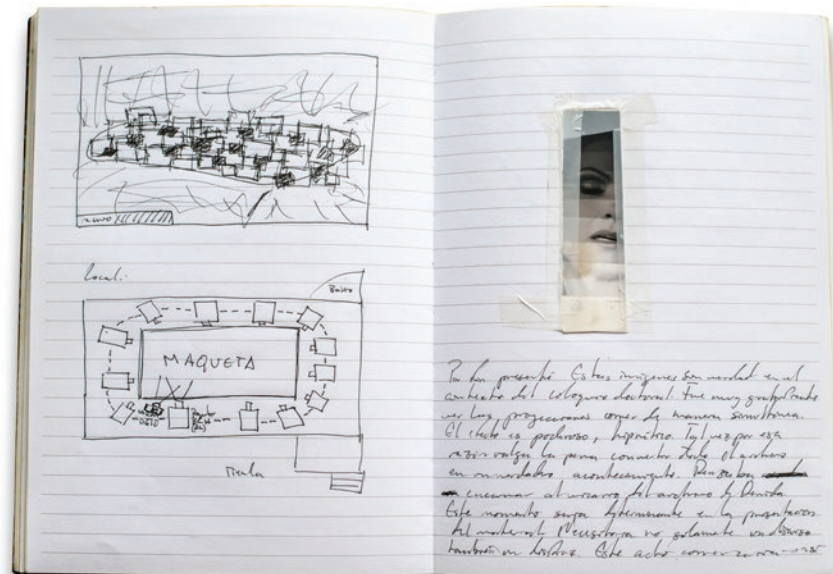 Local:
Baño
MAQUETA
Por fin presenté Estas imágenes sin verdad en el
contexto del coloquio doctoral. Fue muy gratificante
ver las proyecciones correr de manera simultánea.
El efecto es poderoso, hipnótico. Tal vez por esa
razón valga la pena convertir todo el archivo
en un verdadero acontecimiento. Pensaba
encarnar al arcano del archivo de Derrida
Este momento sería determinante en la presentación
del material. Necesitaría no solamente un discurso
también un disfraz. Este acto comenzaría